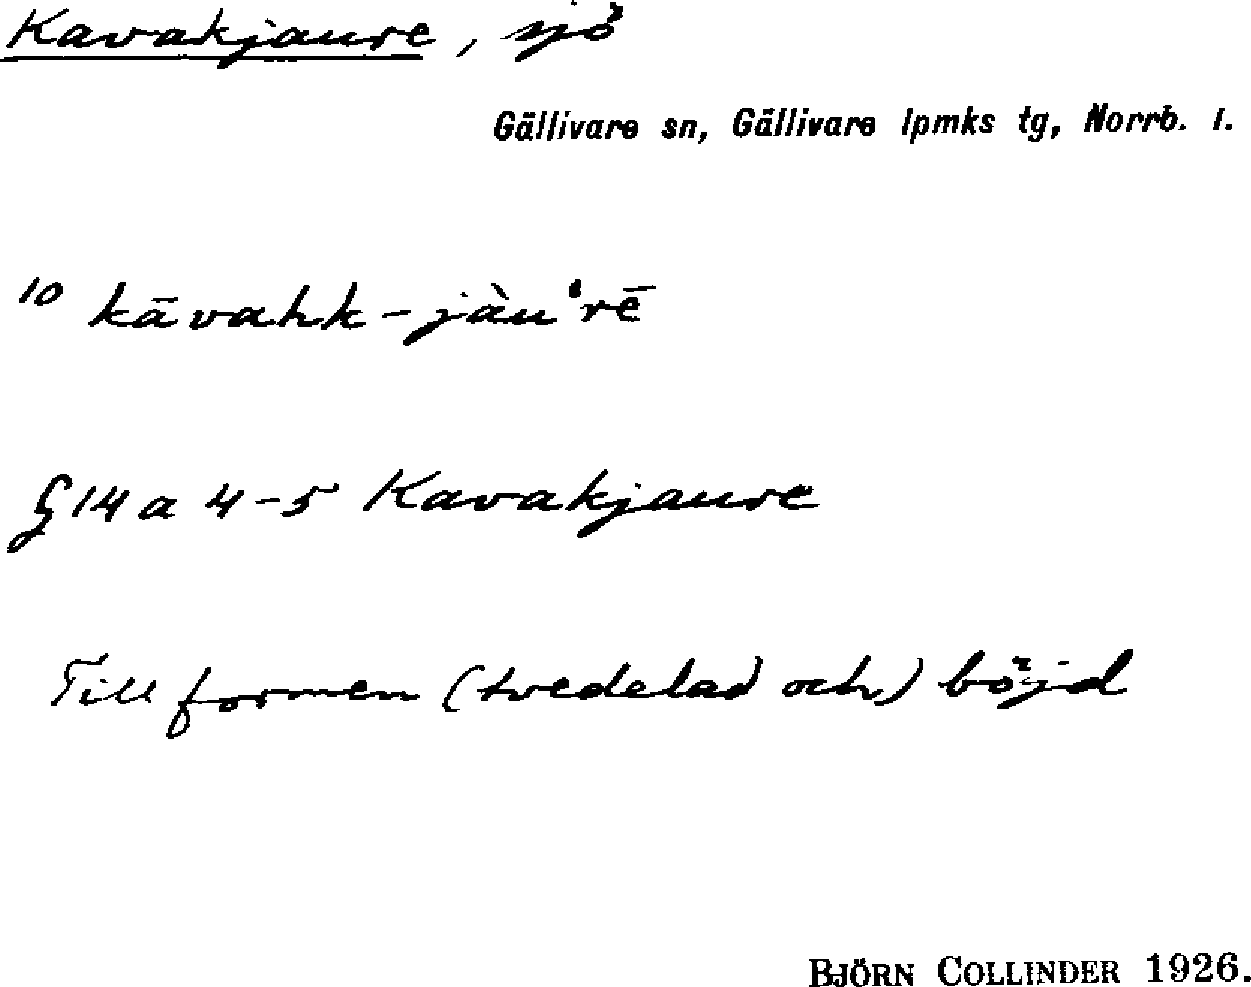 Kavakjaure, sjö
Gällivare sn, Gällivare lpmks tg, Norrb. l.
10 kāvahk-jàu'rē
§ 14 a 4-5 Kavakjaure
Till formen (tredelad och) böjd
BJÖRN COLLINDER 1926.